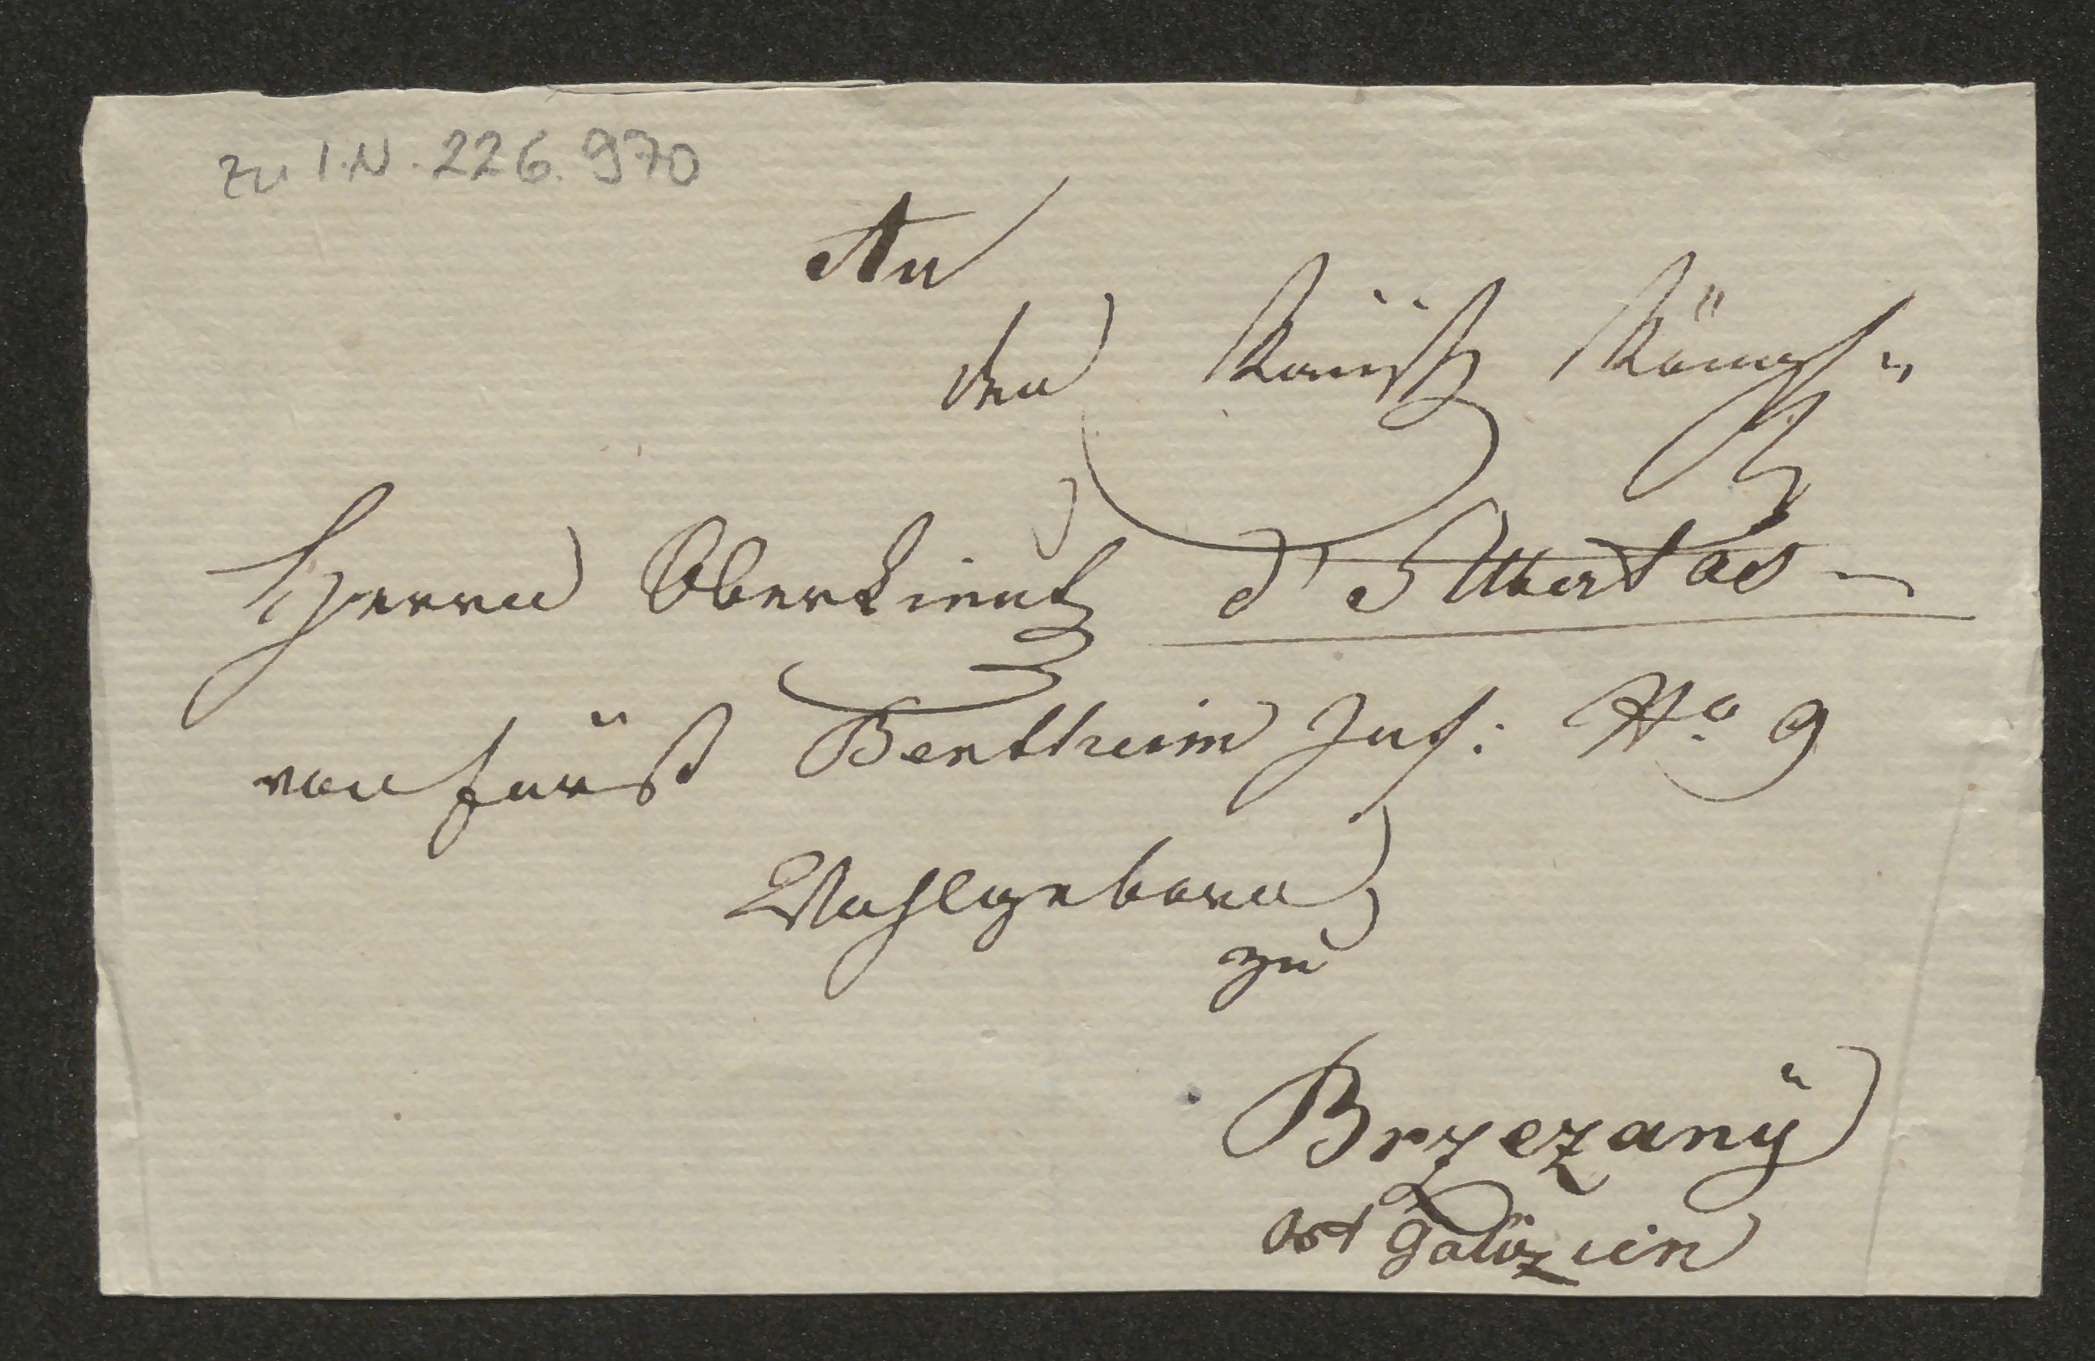 zu I.N. 226.970
An
den Kaiserl Königl
Herrn Oberlieut
von Fürst Bentheim Inf: No 9
Wohlgeborn
zu
Brzezanÿ
Ost Galizien